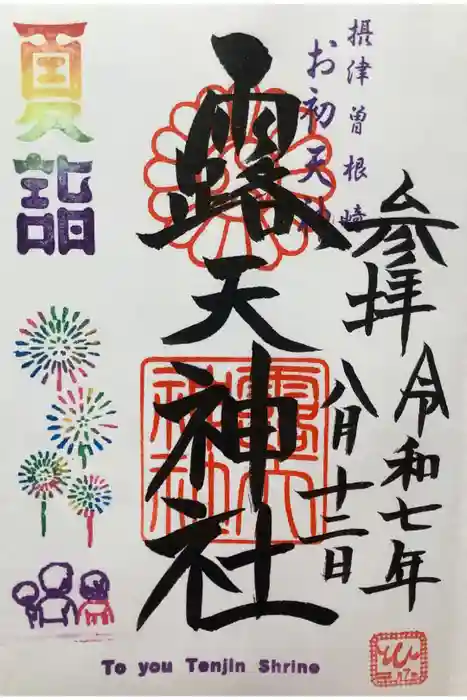 参拝
令和七年
八月十三日
摂津曽根崎
お初天神
露天神社
夏詣
To you Tenjin Shrine